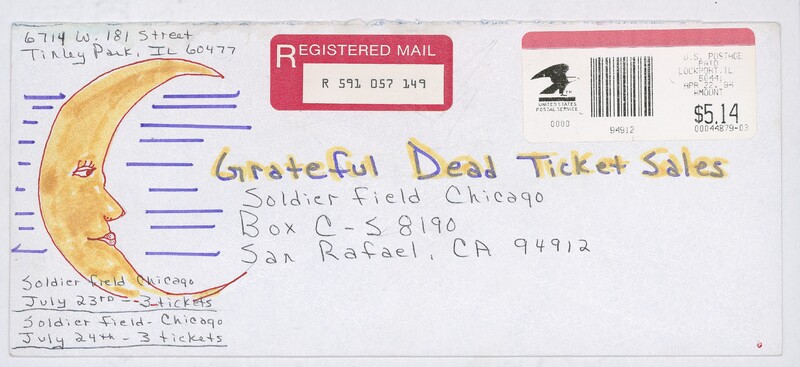 6714 W. 181 Street
Tinley Park, IL 60477
REGISTERED MAIL
R 591 057 149
UNITED STATES
POSTAL SERVICE
0000
94912
U.S. POSTAGE
PAID
LOCKPORT, IL
APR 22, 94
AMOUNT
$5.14
00044879-03
Grateful Dead Ticket Sales
Soldier Field Chicago
Box C-S 8190
San Rafael, CA 94912
Soldier Field Chicago
July 23rd - 3 tickets
Soldier Field - Chicago
July 24th - 3 tickets